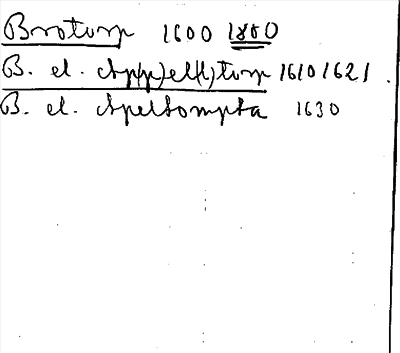 Brotorp 1600 1880
B. el. Ap(p)el(l)torp 1610 1621.
B. el. Apeltompta 1630